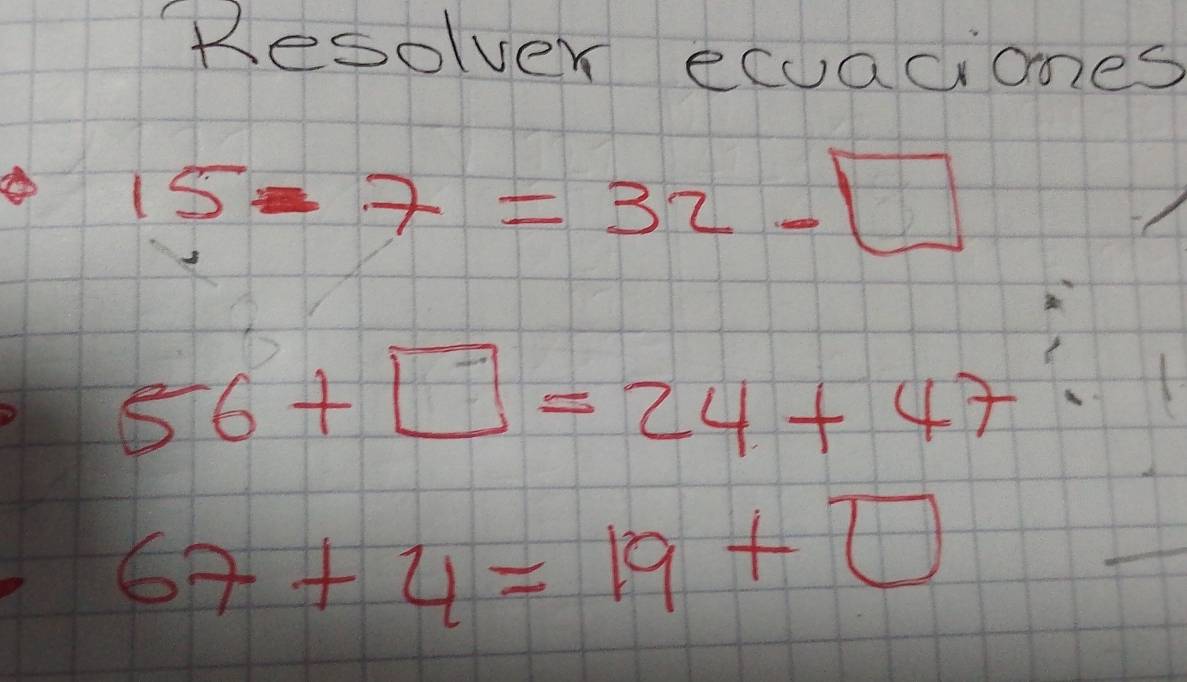 Resolver ecuaciones
15 - 7 = 32 - □
56 + □ = 24 + 47
67 + 4 = 19 + □